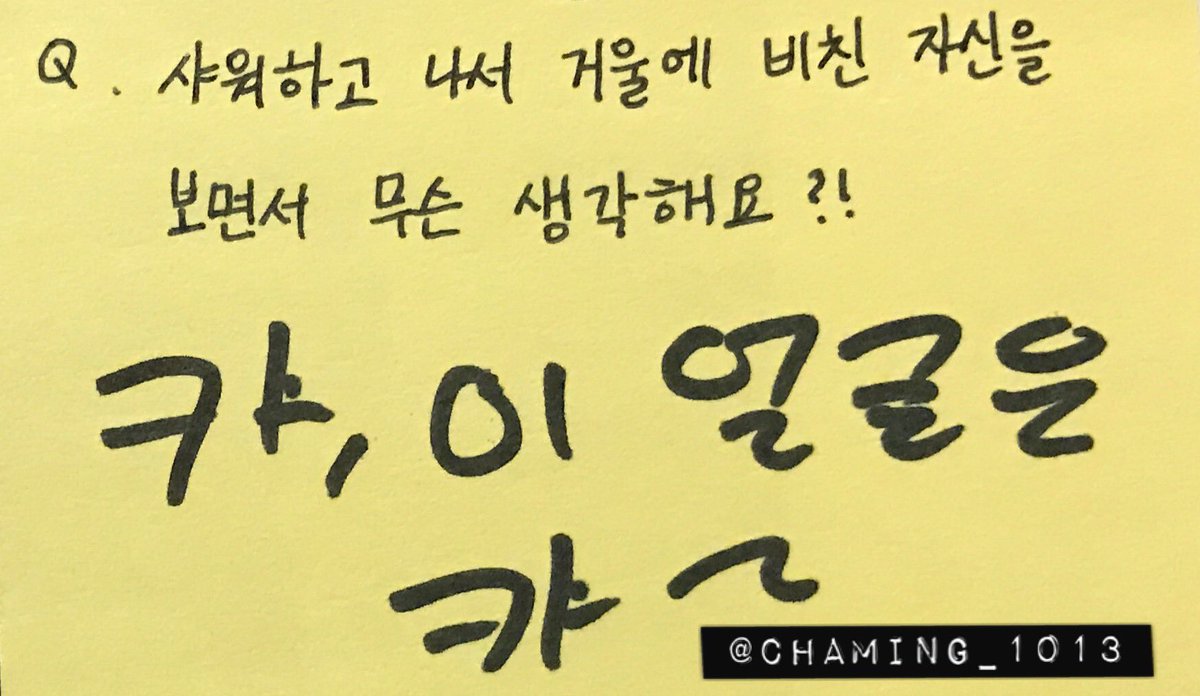 Q. 샤워하고 나서 거울에 비친 자신을
보면서 무슨 생각해요?!
캬, 이 얼글은
캬~
@CHAMING_1013